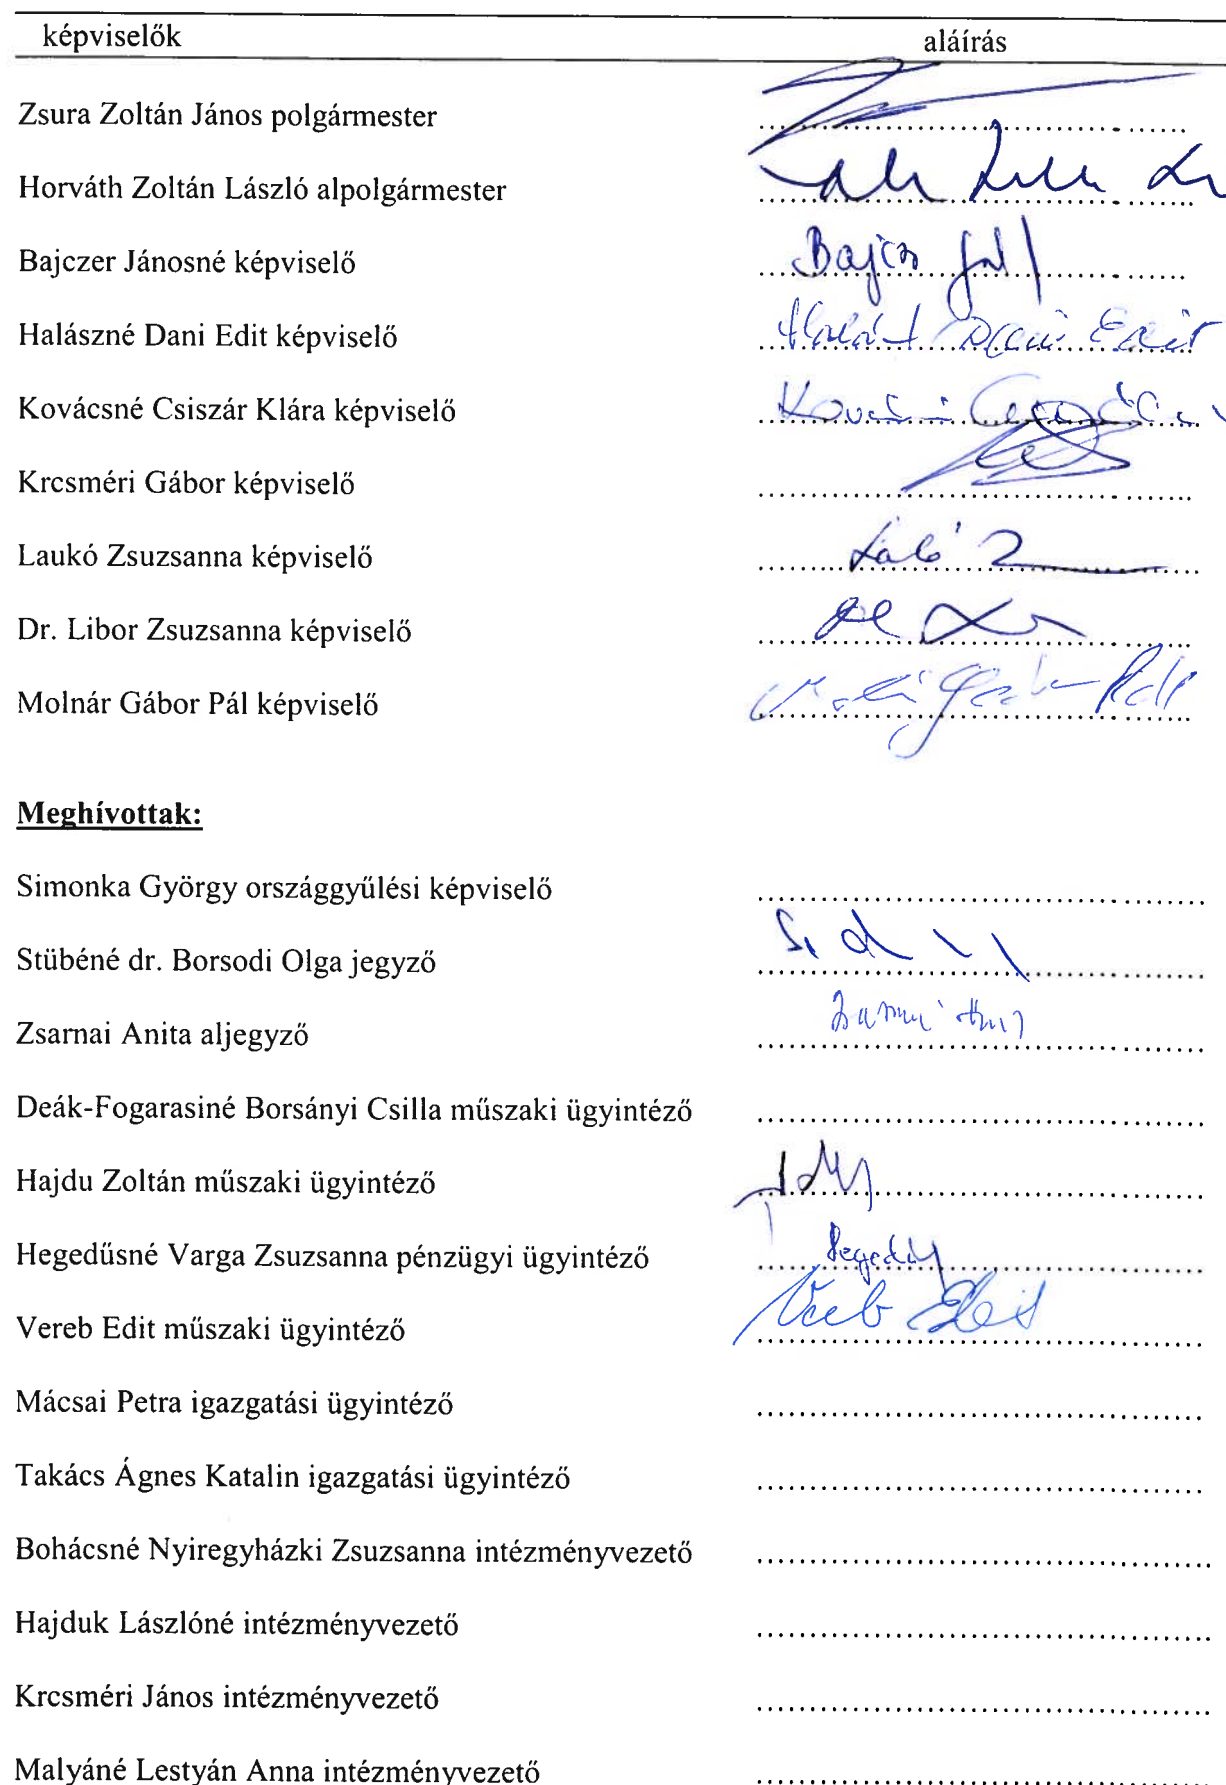 képviselők aláírás
Zsura Zoltán János polgármester
Horváth Zoltán László alpolgármester
Bajczer Jánosné képviselő
Halászné Dani Edit képviselő
Kovácsné Csiszár Klára képviselő
Krcsméri Gábor képviselő
Laukó Zsuzsanna képviselő
Dr. Libor Zsuzsanna képviselő
Molnár Gábor Pál képviselő
Meghívottak:
Simonka György országgyűlési képviselő
Stübéné dr. Borsodi Olga jegyző
Zsarnai Anita aljegyző
Deák-Fogarasiné Borsányi Csilla műszaki ügyintéző
Hajdu Zoltán műszaki ügyintéző
Hegedűsné Varga Zsuzsanna pénzügyi ügyintéző
Vereb Edit műszaki ügyintéző
Mácsai Petra igazgatási ügyintéző
Takács Ágnes Katalin igazgatási ügyintéző
Bohácsné Nyiregyházki Zsuzsanna intézményvezető
Hajduk Lászlóné intézményvezető
Krcsméri János intézményvezető
Malyáné Lestyán Anna intézményvezető